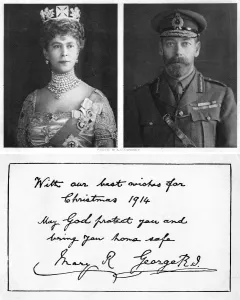 With our best wishes for
Christmas 1914
May God protect you and
bring you home safe
Mary R George R.I